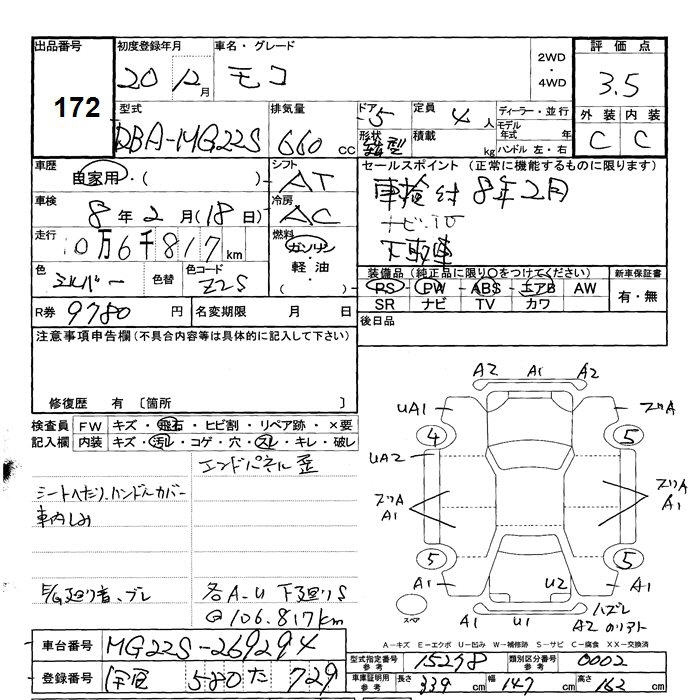 出品番号
172
初度登録年月
20 12月
車名・グレード
モコ
2WD
・
4WD
評価点
3.5
外装 内装
C C
型式
DBA-MG22S
排気量
660 cc
ドア
5
形状
定員
4人
積載
kg
ディーラー・並行
モデル
年式 年
ハンドル 左・右
車歴
自家用・( )
シフト
AT
車検
8年2月(18日)
冷房
AC
走行
10万6千817km
燃料
ガソリン
・
軽油
・
( )
色
シルバー
色替
色コード
Z2S
セールスポイント(正常に機能するものに限ります)
車検付 8年2月
ナビ.TV
下取車
装備品(純正品に限り○をつけてください)
PS PW ABS エアB AW
SR ナビ TV カワ
新車保証書
有・無
R券 9780円
名変期限 月 日
後日品
注意事項申告欄(不具合箇所等は具体的に記入して下さい)
修復歴 有〔箇所 〕
検査員
記入欄
FW キズ・飛石・ヒビ割・リペア跡・×要
内装 キズ・汚レ・コゲ・穴・スレ・キレ・破レ
エンドパネル歪
シートへたり.ハンドルカバー
車内しみ
E/G廻り音、ブレ
各A-U 下廻りS
@106.817km
A2 A1 A2
UA1 ズリA
4 5
UA2
ズリA
A1
ズリA
A1
5 5
A1 U2 A1
スペア
A1 U1
ハズレ
A2
A-キズ E-エクボ U-凹み W-補修跡 S-サビ C-腐食 XX-交換済
車台番号 MG22S-269294
登録番号 580 た 729
型式指定番号 参考 15278
類別区分番号 参考 0002
車体証明用 参考 長さ 339cm 幅 147cm 高さ 162cm